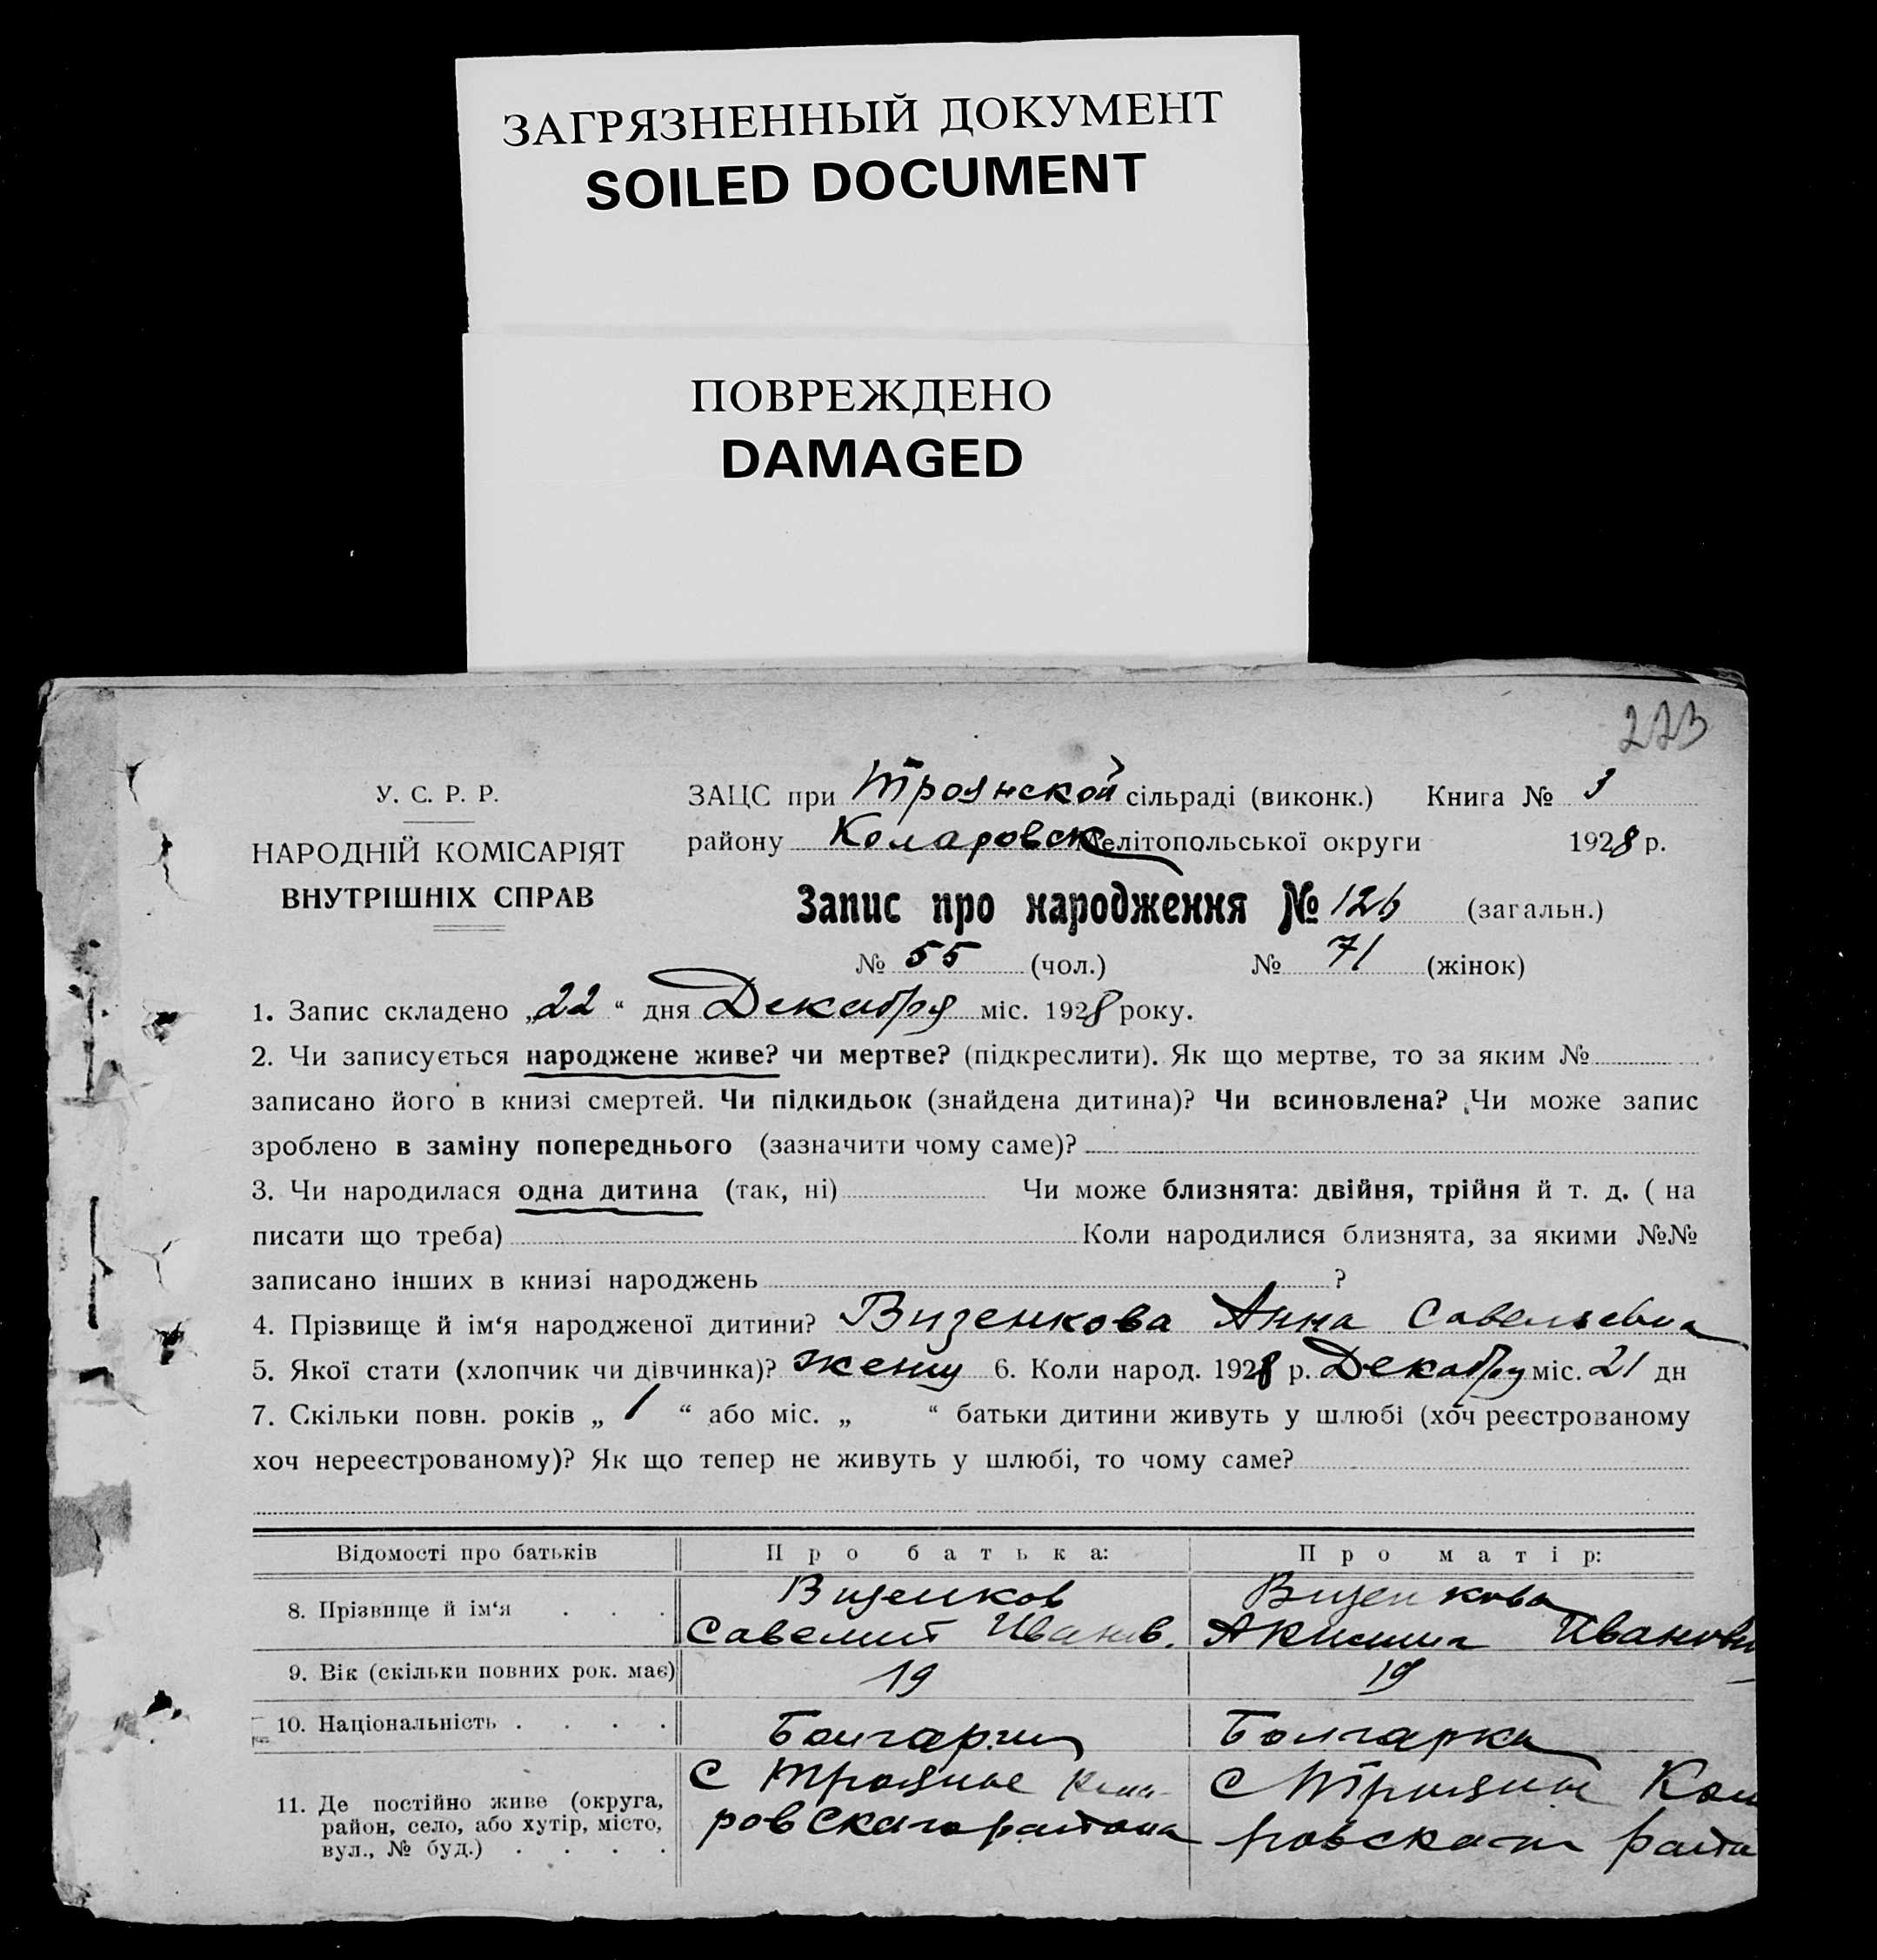 ЗАГРЯЗНЕННЫЙ ДОКУМЕНТ
SOILED DOCUMENT
ПОВРЕЖДЕНО
DAMAGED
223
У. С. Р. Р.
НАРОДНІЙ КОМІСАРІЯТ
ВНУТРІШНІХ СПРАВ
ЗАЦС при Троянской сільраді (виконк.) Книга № 3
району Коларовск Мелітопольської округи 1928 р.
Запис про народження № 126 (загальн.)
№ 55 (чол.) № 71 (жінок)
1. Запис складено „22“ дня Декабря міс. 1928 року.
2. Чи записується народжене живе? чи мертве? (підкреслити). Як що мертве, то за яким №
записано його в книзі смертей. Чи підкидьок (знайдена дитина)? Чи всиновлена? Чи може запис
зроблено в заміну попереднього (зазначити чому саме)?
3. Чи народилася одна дитина (так, ні) Чи може близнята: двійня, трійня й т. д. ( на
писати що треба) Коли народилися близнята, за якими №№
записано інших в книзі народжень ?
4. Прізвище й ім‘я народженої дитини? Визенкова Анна Савельевна
5. Якої стати (хлопчик чи дівчинка)? 6. Коли народ. 1928 р. Декабря міс. 21 дн
7. Скільки повн. років „ 1 “ або міс. „ “ батьки дитини живуть у шлюбі (хоч реєстрованому
хоч нереєстрованому)? Як що тепер не живуть у шлюбі, то чому саме?
Відомості про батьків Про батька: Про матір:
8. Прізвище й ім‘я . . . Визенков Визенкова
Савелий Иванов. Иванов
9. Вік (скільки повних рок. має) 19 19
10. Національність . . . . Болгарин Болгарка
11. Де постійно живе (округа, район, село, або хутір, місто, вул., № буд.) . . . .
С Трояны Кола-
ровскаго района
С Трояны Кол
ровскаго райо